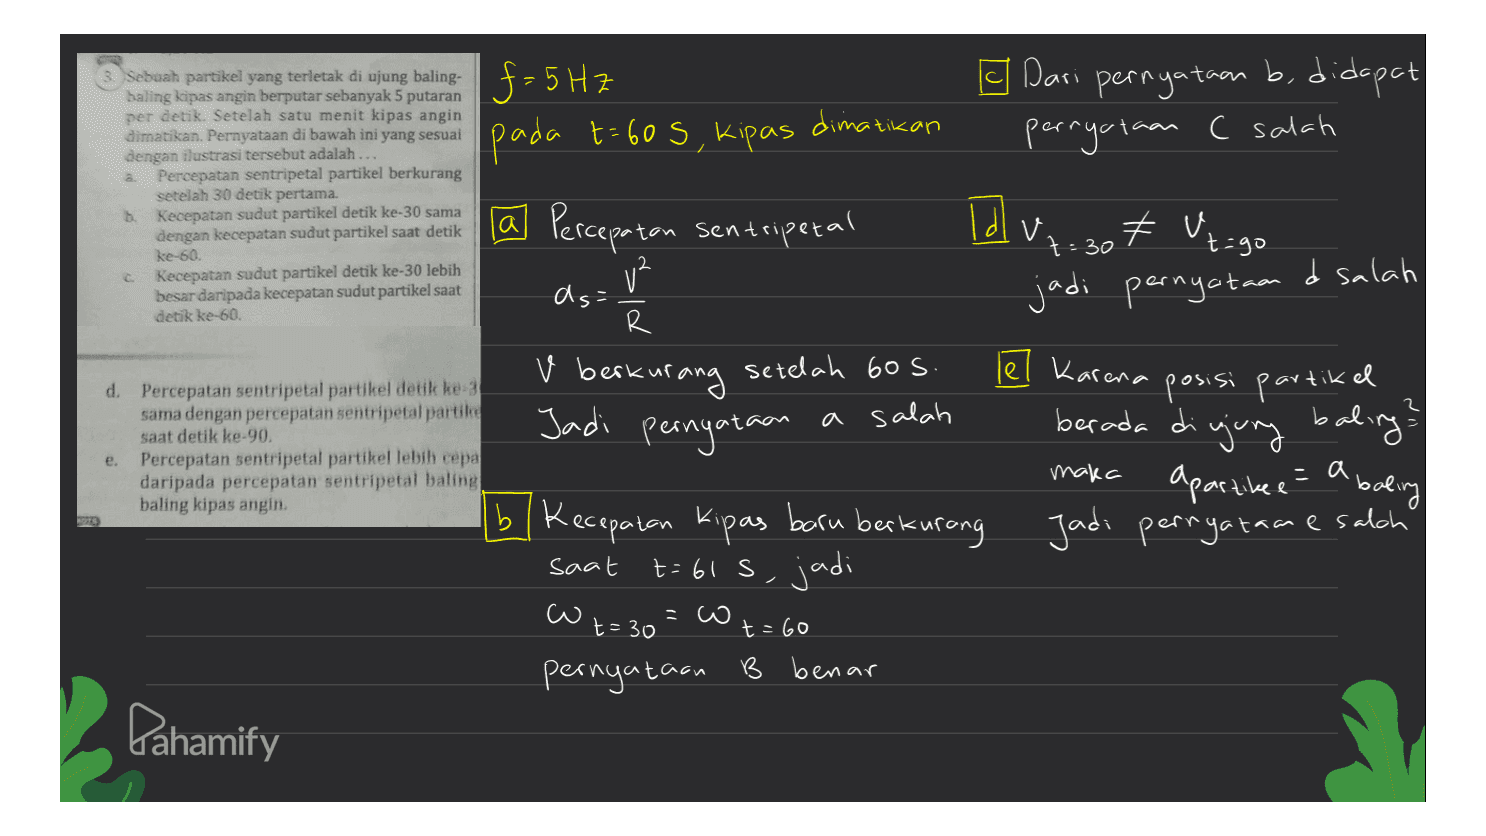 3. Sebuah partikel yang terletak di ujung baling-
baling kipas angin berputar sebanyak 5 putaran
per detik. Setelah satu menit kipas angin
dimatikan. Pernyataan di bawah ini yang sesuai
dengan ilustrasi tersebut adalah . . .
a. Percepatan sentripetal partikel berkurang
setelah 30 detik pertama.
b. Kecepatan sudut partikel detik ke-30 sama
dengan kecepatan sudut partikel saat detik
ke-60.
c. Kecepatan sudut partikel detik ke-30 lebih
besar daripada kecepatan sudut partikel saat
detik ke-60.
d. Percepatan sentripetal partikel detik ke-3
sama dengan percepatan sentripetal partike
saat detik ke-90.
e. Percepatan sentripetal partikel lebih cepa
daripada percepatan sentripetal baling
baling kipas angin.
f = 5 Hz
pada t = 60 s, kipas dimatikan
a Percepatan sentripetal
as = V²/R
V berkurang setelah 60 s.
Jadi pernyataan a salah
b Kecepatan kipas baru berkurang
saat t = 61 s, jadi
ω t=30 = ω t=60
pernyataan B benar
c Dari pernyataan b, didapat
pernyataan C salah
d V t=30 ≠ V t=90
jadi pernyataan d salah
e Karena posisi partikel
berada di ujung baling²
maka a partikel = a baling
Jadi pernyataan e salah
Pahamify